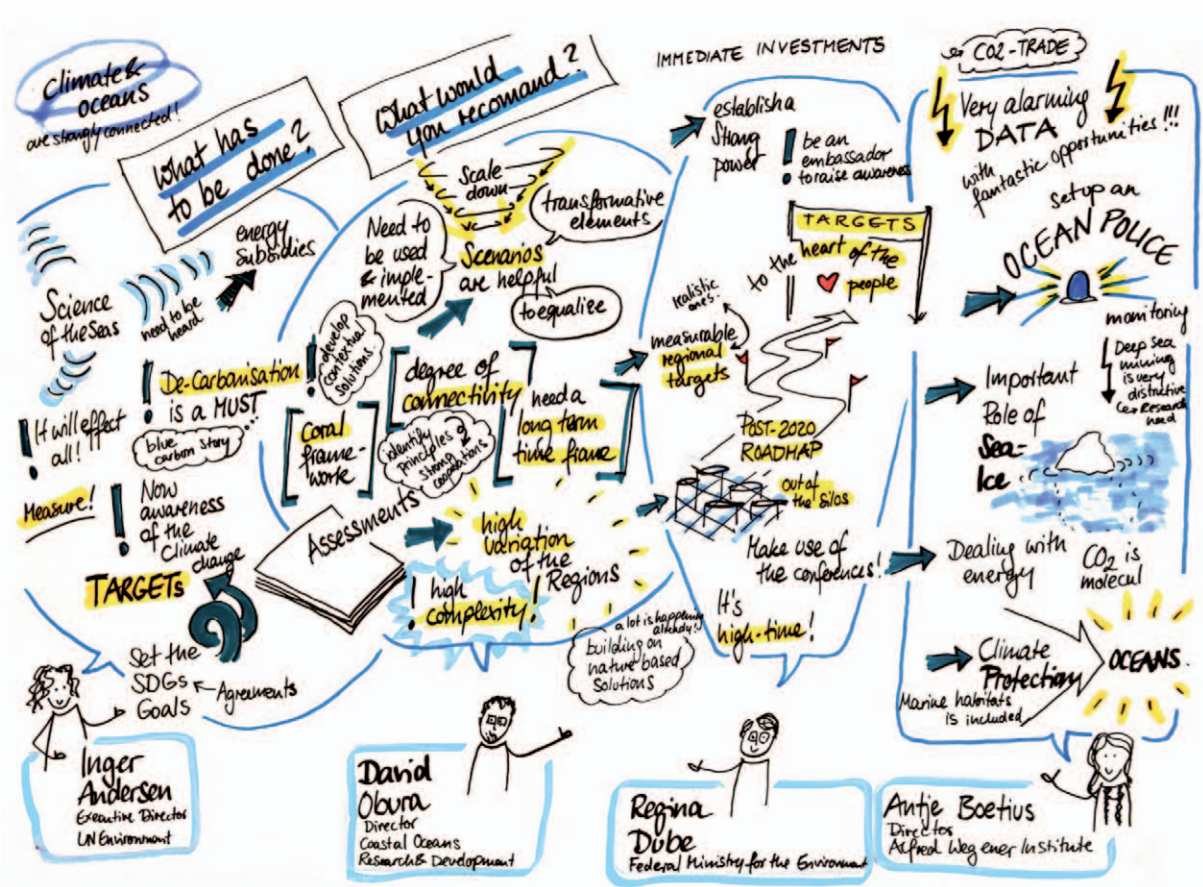 Climate &
oceans
are strongly connected!
What has
to be done?
What would
you recomand?
IMMEDIATE INVESTMENTS
CO2-TRADE
Science
of the Seas
need to be
heard
energy
subsidies
It will effect
all!
De-Carbonisation
is a MUST
blue
carbon story
Measure!
Now
awareness
of the
Climate
change
TARGETs
Set the
SDGs
Goals
Agreements
Inger
Andersen
Executive Director
UN Environment
Scale
down
transformative
elements
Need to
be used
& imple-
mented
Scenarios
are helpful
to equalize
develop
contextual
solutions
Coral
frame-
work
degree of
connectivity
identify
principles &
strong
need a
long term
time frame
Assessments
high
variation
of the
Regions
high
complexity!
a lot is happening
already!
building on
nature based
Solutions
David
Obura
Director
Coastal Oceans
Research & Development
establish a
strong
power
be an
embassador
to raise awareness
TARGETS
to the heart of the
people
realistic
ones
measurable
regional
targets
POST-2020
ROADMAP
out of
the silos
Make use of
the conferences!
It's
high-time!
Regina
Dube
Federal Ministry for the Environment
Very alarming
DATA
with
fantastic opportunities!!!
set up an
OCEAN POLICE
monitoring
Deep Sea
mining
is very
distructive
Research
need
Important
Role of
Sea-
Ice
Dealing with
energy
CO2 is
molecul
Climate
Protection
OCEANS
Marine habitats
is included
Antje Boetius
Director
Alfred Wegener Institute